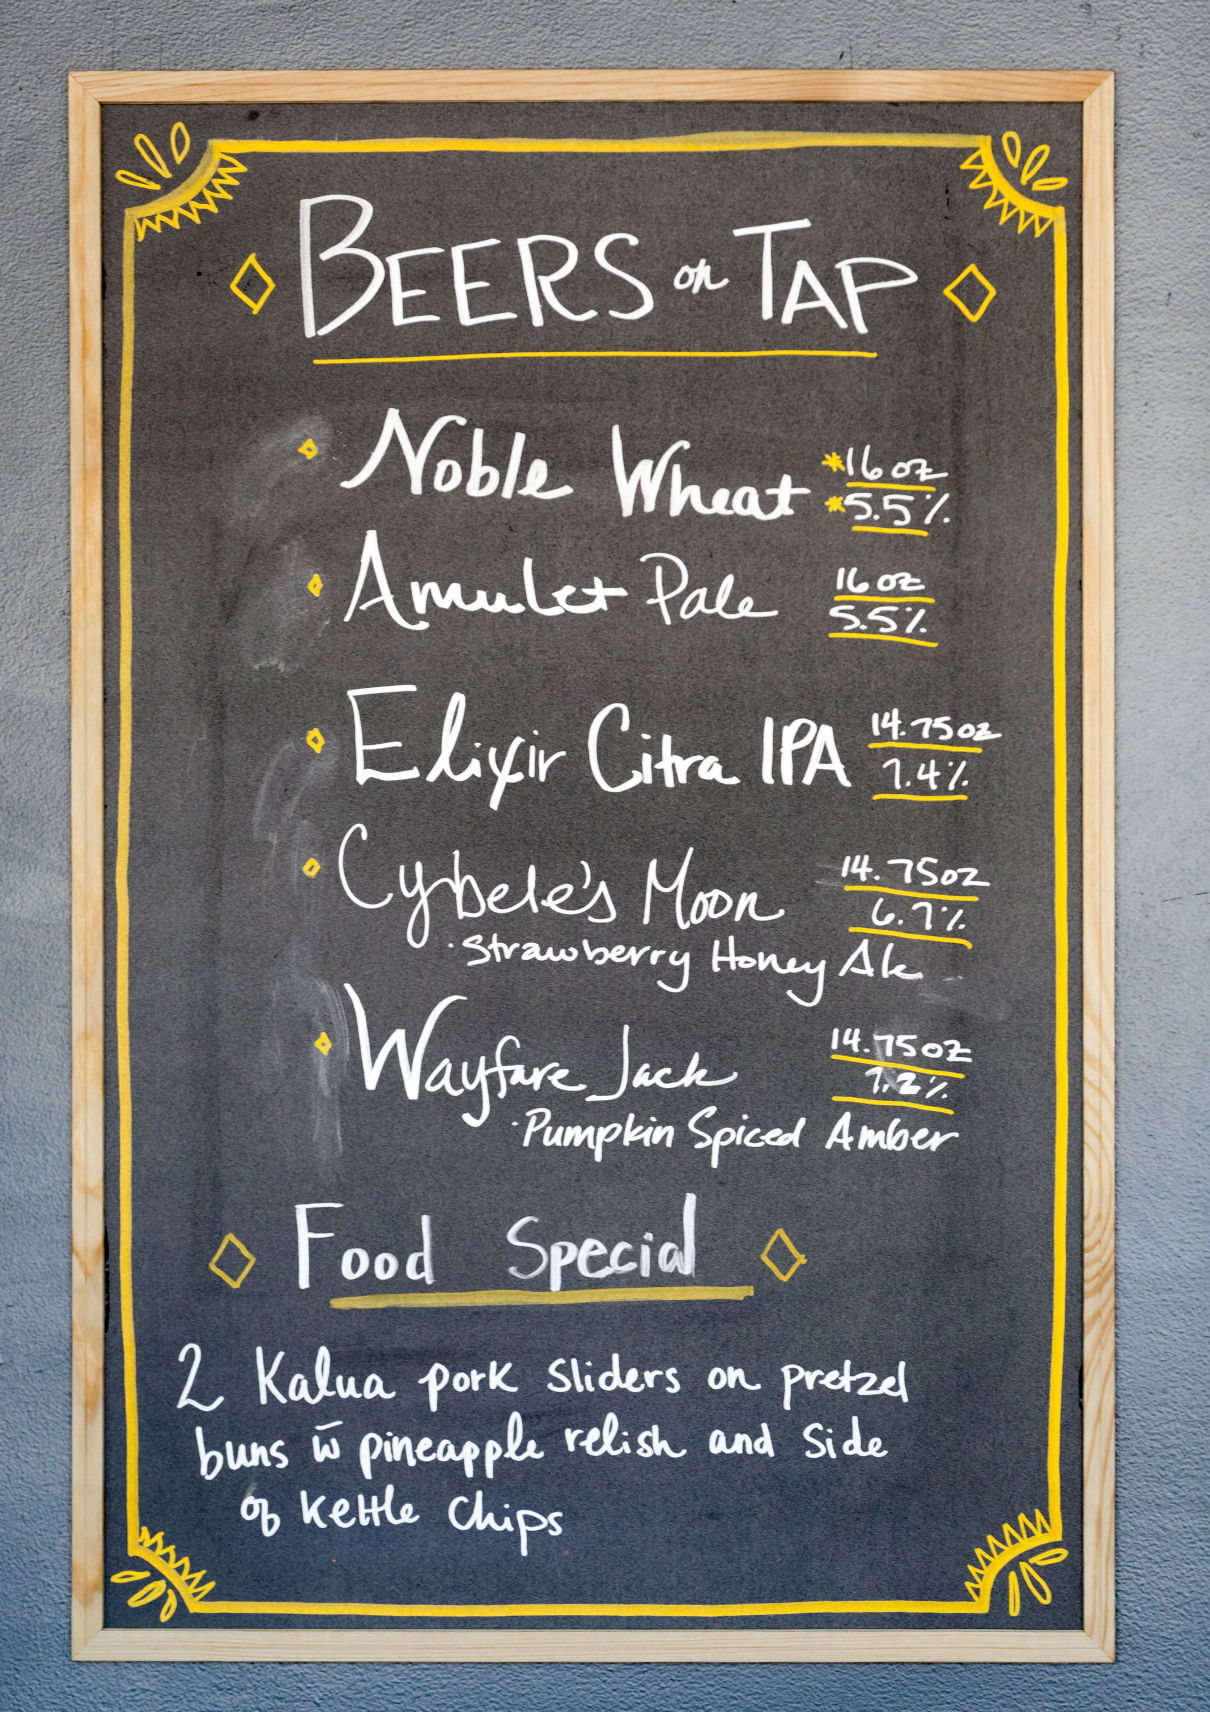 BEERS on TAP
Noble Wheat *16 oz
*5.5%
Amulet Pale 16 oz
5.5%
Elixir Citra IPA 14.75oz
7.4%
Cybele's Moon 14.75oz
6.7%
·Strawberry Honey Ale
Wayfare Jack 14.75oz
7.2%
·Pumpkin Spiced Amber
Food Special
2 Kalua pork sliders on pretzel
buns w̄ pineapple relish and side
of kettle chips